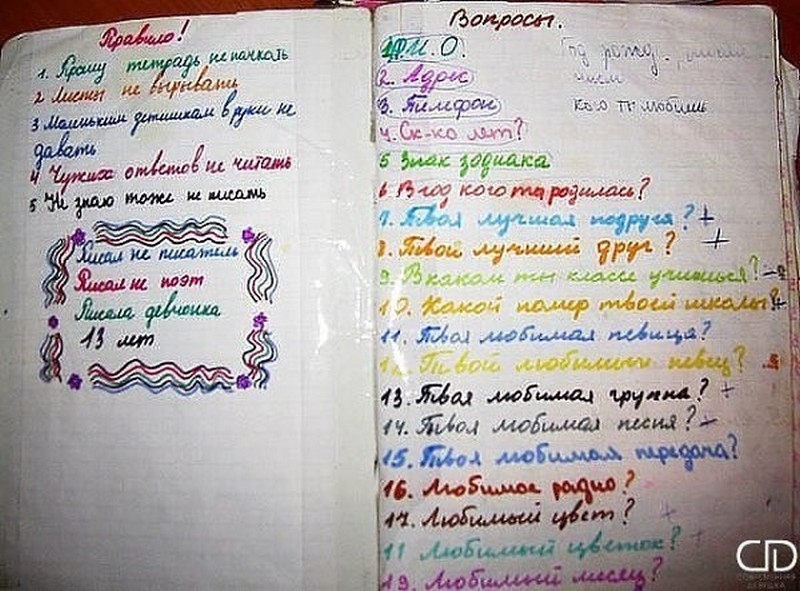 Правило!
1. Прошу тетрадь не пачкать
2 Листы не вырывать
3 Маленьким детишкам в руки не
давать
4 Чужих ответов не читать
5 Не знаю тоже не писать
Писал не писатель
Писал не поэт
Писала девчонка
13 лет
Вопросы.
1. Ф.И.О.
2. Адрес
3. Тилифон
4. Ск-ко лет?
5 Знак зодиака
6 В год кого та родилась?
7. Твоя лучшая подруга? +
8. Твой лучший друг? +
9. В каком ты классе учишься?
10. Какой номер твоей школы?
11. Твоя любимая певица?
12. Твой любимый певец?
13. Твоя любимая группа? +
14. Твоя любимая песня?
15. Твоя любимая передача?
16. Любимое радио?
17. Любимый цвет? +
11 Любимый цветок? +
19. Любимый месяц?
Год рожд.
кого ты любишь
СОВРЕМЕННАЯ
ДЕВУШКА